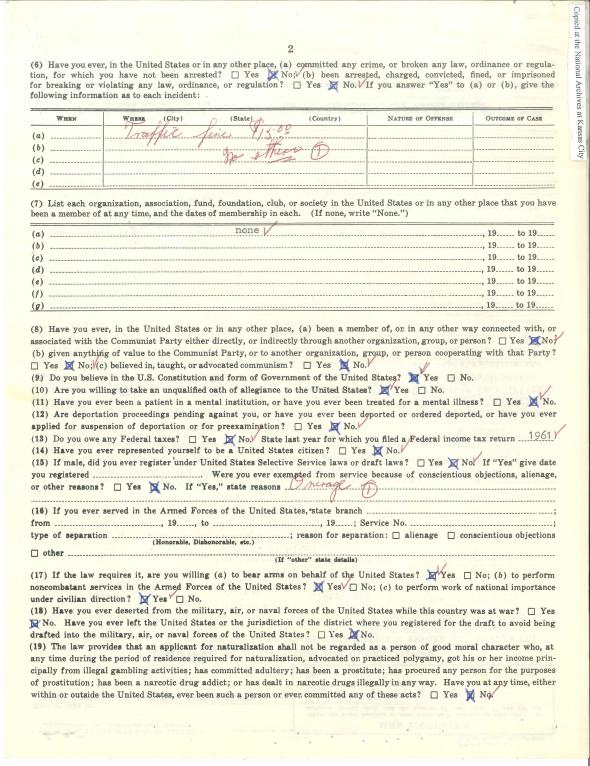 Copied at the National Archives at Kansas City
2
(6) Have you ever, in the United States or in any other place, (a) committed any crime, or broken any law, ordinance or regula-
tion, for which you have not been arrested? ☐ Yes ☒ No; (b) been arrested, charged, convicted, fined, or imprisoned
for breaking or violating any law, ordinance, or regulation? ☐ Yes ☒ No. If you answer "Yes" to (a) or (b), give the
following information as to each incident:
WHEN WHERE (City) (State) (Country) NATURE OF OFFENSE OUTCOME OF CASE
(a) Traffic fine $15.00
(b) No others 1
(c)
(d)
(e)
(7) List each organization, association, fund, foundation, club, or society in the United States or in any other place that you have
been a member of at any time, and the dates of membership in each. (If none, write "None.")
(a) none , 19 to 19
(b) , 19 to 19
(c) , 19 to 19
(d) , 19 to 19
(e) , 19 to 19
(f) , 19 to 19
(g) , 19 to 19
(8) Have you ever, in the United States or in any other place, (a) been a member of, or in any other way connected with, or
associated with the Communist Party either directly, or indirectly through another organization, group, or person? ☐ Yes ☒ No;
(b) given anything of value to the Communist Party, or to another organization, group, or person cooperating with that Party?
☐ Yes ☒ No; (c) believed in, taught, or advocated communism? ☐ Yes ☒ No.
(9) Do you believe in the U.S. Constitution and form of Government of the United States? ☒ Yes ☐ No.
(10) Are you willing to take an unqualified oath of allegiance to the United States? ☒ Yes ☐ No.
(11) Have you ever been a patient in a mental institution, or have you ever been treated for a mental illness? ☐ Yes ☒ No.
(12) Are deportation proceedings pending against you, or have you ever been deported or ordered deported, or have you ever
applied for suspension of deportation or for preexamination? ☐ Yes ☒ No.
(13) Do you owe any Federal taxes? ☐ Yes ☒ No. State last year for which you filed a Federal income tax return 1961
(14) Have you ever represented yourself to be a United States citizen? ☐ Yes ☒ No.
(15) If male, did you ever register under United States Selective Service laws or draft laws? ☐ Yes ☒ No. If "Yes" give date
you registered . Were you ever exempted from service because of conscientious objections, alienage,
or other reasons? ☐ Yes ☒ No. If "Yes," state reasons Overage 1
(16) If you ever served in the Armed Forces of the United States, state branch ;
from , 19 , to , 19 ; Service No. ;
type of separation ; reason for separation: ☐ alienage ☐ conscientious objections
(Honorable, Dishonorable, etc.)
☐ other
(If "other" state details)
(17) If the law requires it, are you willing (a) to bear arms on behalf of the United States? ☒ Yes ☐ No; (b) to perform
noncombatant services in the Armed Forces of the United States? ☒ Yes ☐ No; (c) to perform work of national importance
under civilian direction? ☒ Yes ☐ No.
(18) Have you ever deserted from the military, air, or naval forces of the United States while this country was at war? ☐ Yes
☒ No. Have you ever left the United States or the jurisdiction of the district where you registered for the draft to avoid being
drafted into the military, air, or naval forces of the United States? ☐ Yes ☒ No.
(19) The law provides that an applicant for naturalization shall not be regarded as a person of good moral character who, at
any time during the period of residence required for naturalization, advocated or practiced polygamy, got his or her income prin-
cipally from illegal gambling activities; has committed adultery; has been a prostitute; has procured any person for the purposes
of prostitution; has been a narcotic drug addict; or has dealt in narcotic drugs illegally in any way. Have you at any time, either
within or outside the United States, ever been such a person or ever committed any of these acts? ☐ Yes ☒ No.